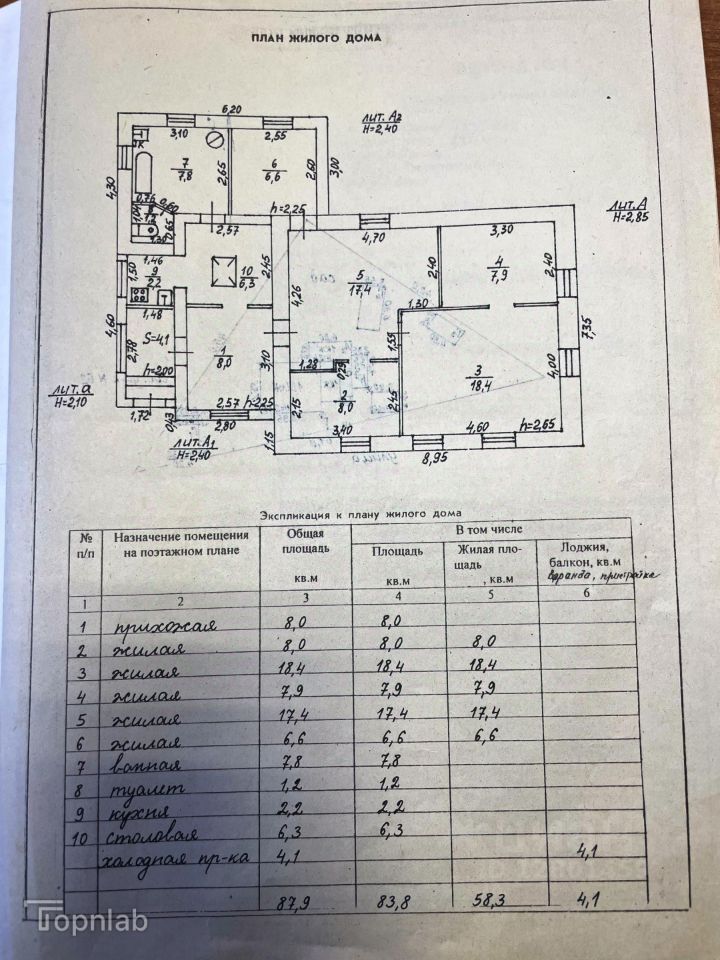 ПЛАН ЖИЛОГО ДОМА
6,20
лит. А2
Н=2,40
3,10
2,55
7
7,8
2,65
6
6,6
2,60
3,00
4,30
0,76
0,60
1,04
0,65
1,30
h=2,25
2,57
лит. А
Н=2,85
4,70
3,30
1,46
1,50
9
2,2
10
6,3
2,45
5
17,4
2,40
4
7,9
2,40
4,26
1,30
1,48
S=4,1
4,60
2,78
h=2,00
1
8,0
3,10
1,55
7,35
3
18,4
4,00
1,28
0,29
2
8,0
2,15
2,45
лит. а
Н=2,10
2,57
h=2,25
3,40
4,60
h=2,65
1,72
0,43
2,80
1,15
8,95
лит. А1
Н=2,40
Экспликация к плану жилого дома
№ п/п
Назначение помещения на поэтажном плане
Общая площадь кв.м
В том числе
Площадь кв.м
Жилая площадь , кв.м
Лоджия, балкон, кв.м
веранда, пристройка
1 2 3 4 5 6
1 прихожая 8,0 8,0
2 жилая 8,0 8,0 8,0
3 жилая 18,4 18,4 18,4
4 жилая 7,9 7,9 7,9
5 жилая 17,4 17,4 17,4
6 жилая 6,6 6,6 6,6
7 ванная 7,8 7,8
8 туалет 1,2 1,2
9 кухня 2,2 2,2
10 столовая 6,3 6,3
холодная пр-ка 4,1 4,1
87,9 83,8 58,3 4,1
Topnlab